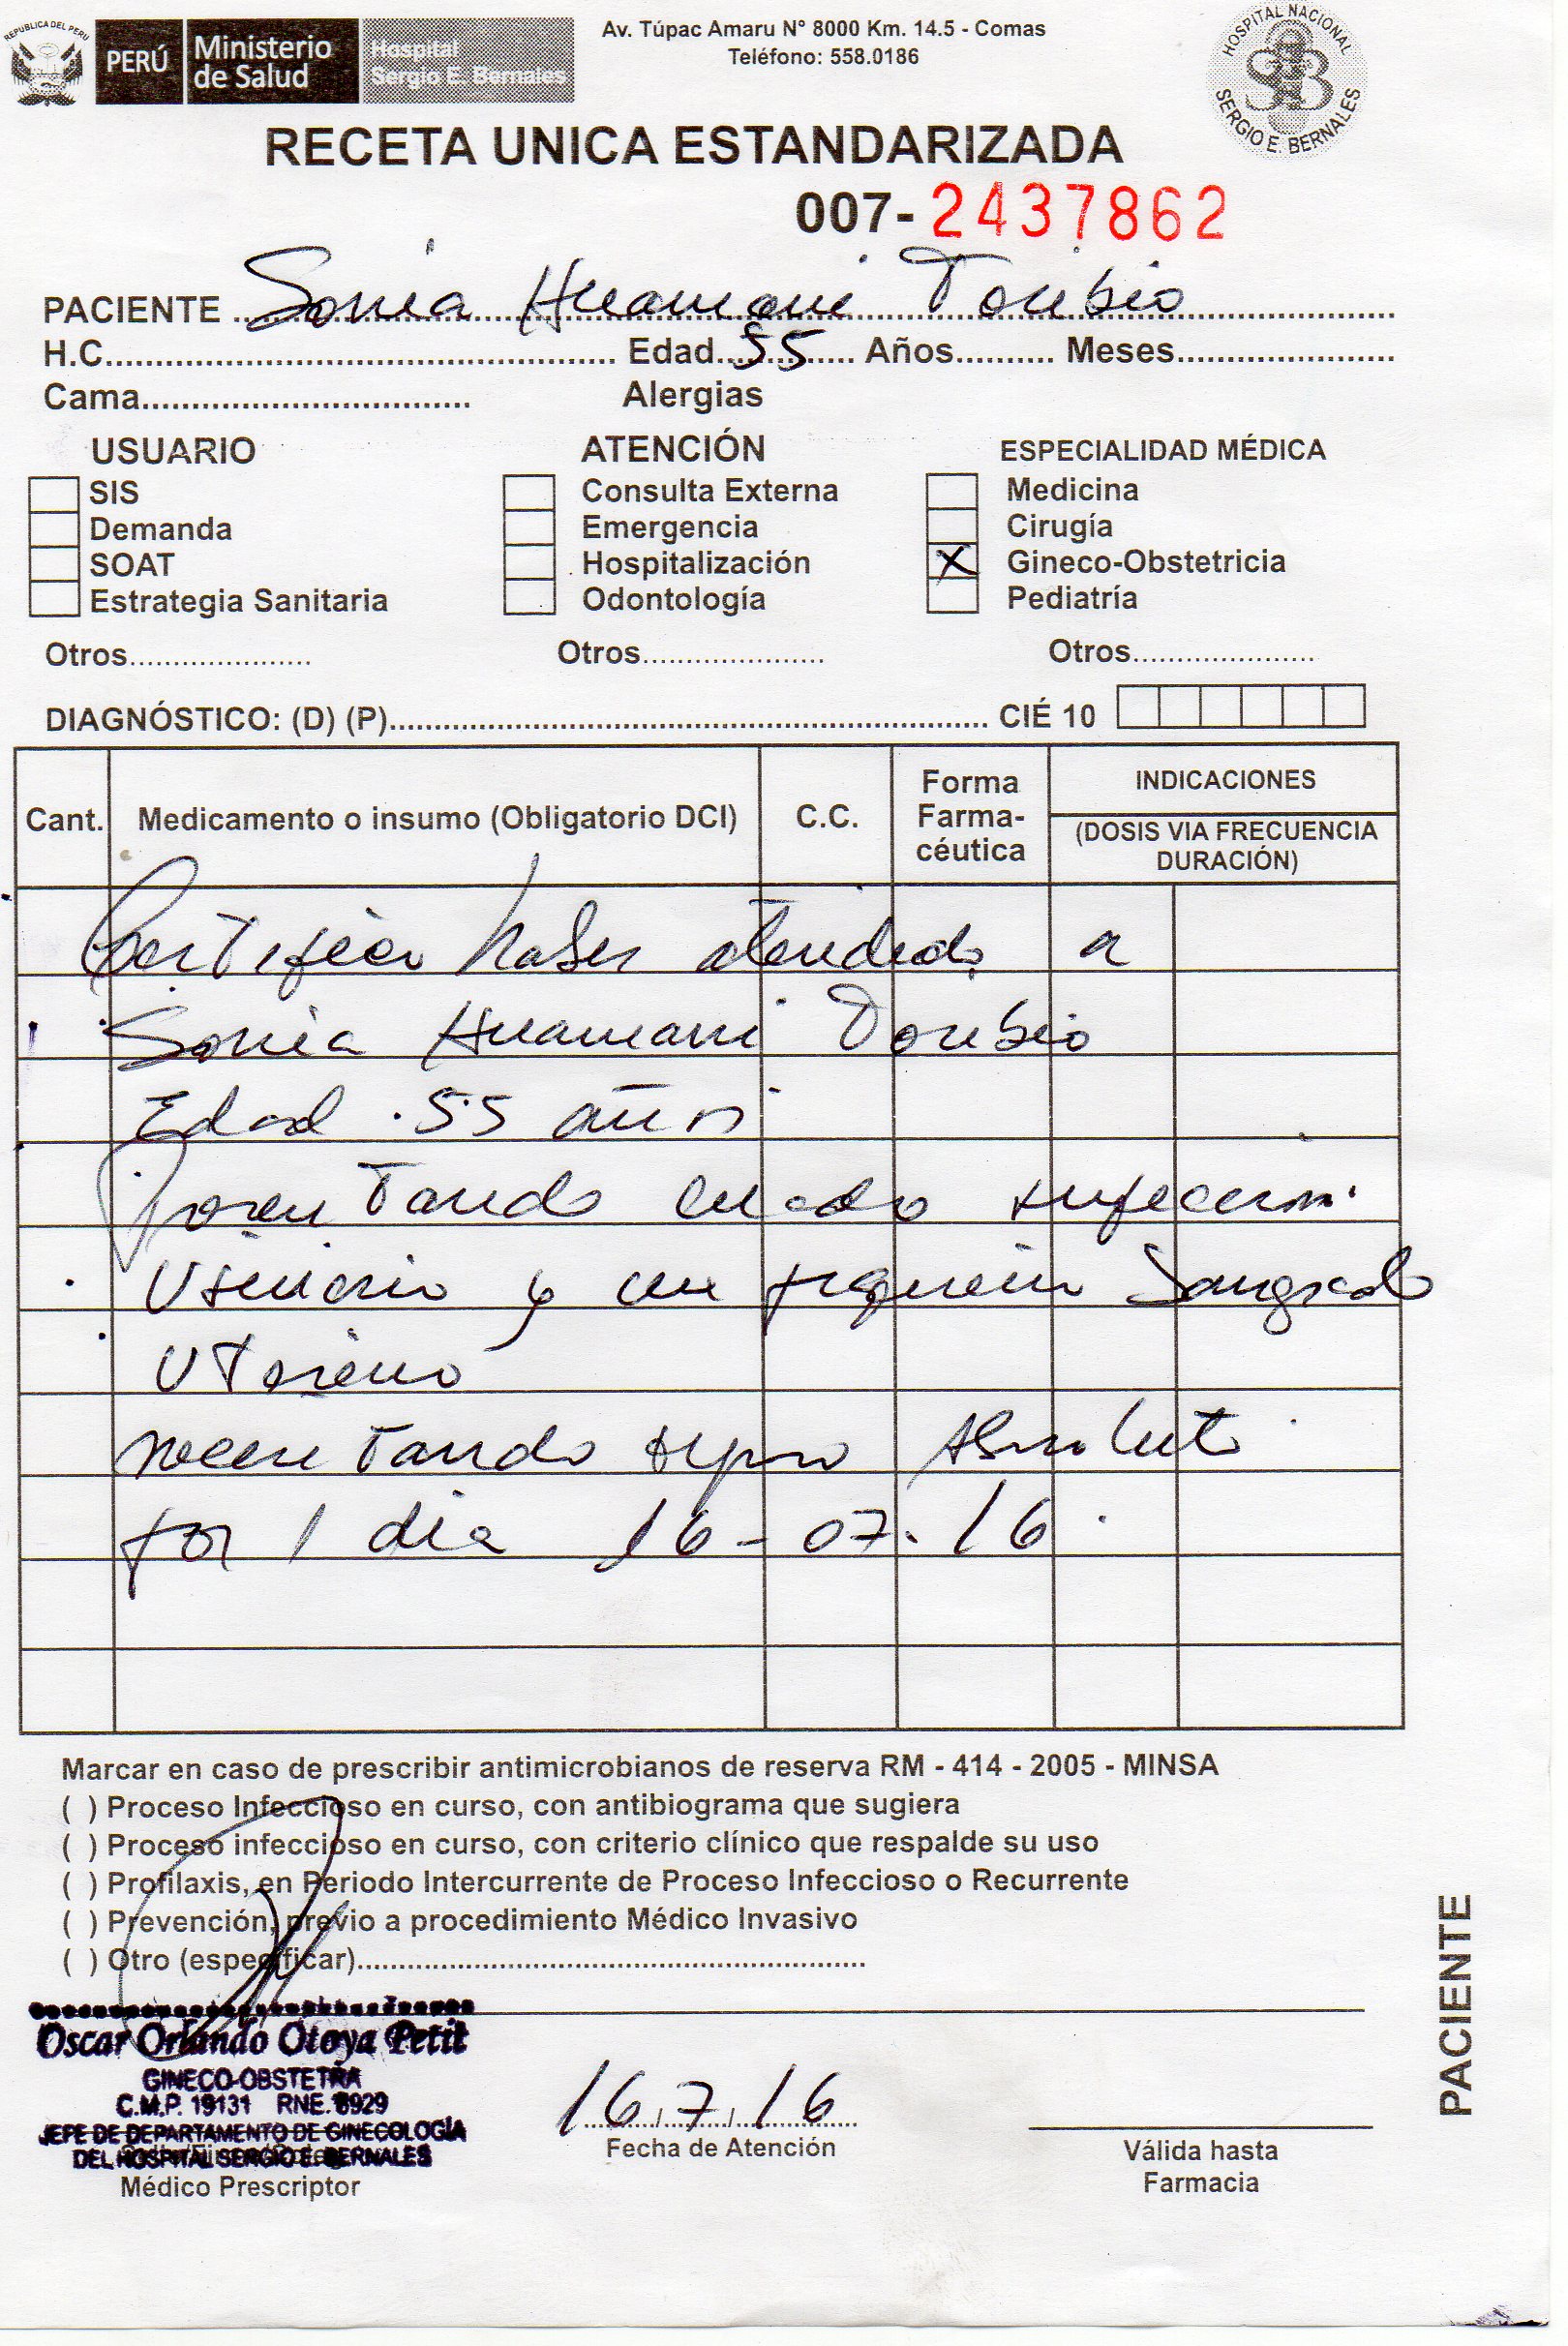 REPUBLICA DEL PERU
PERÚ Ministerio de Salud Hospital Sergio E. Bernales
Av. Túpac Amaru N° 8000 Km. 14.5 - Comas
Teléfono: 558.0186
HOSPITAL NACIONAL SERGIO E. BERNALES
RECETA UNICA ESTANDARIZADA
007- 2437862
PACIENTE Sonia Huamani Toribio
H.C. Edad 55 Años Meses
Cama Alergias
USUARIO ATENCIÓN ESPECIALIDAD MÉDICA
SIS Consulta Externa Medicina
Demanda Emergencia Cirugía
SOAT Hospitalización X Gineco-Obstetricia
Estrategia Sanitaria Odontología Pediatría
Otros Otros Otros
DIAGNÓSTICO: (D) (P) CIÉ 10
Cant. Medicamento o insumo (Obligatorio DCI) C.C. Forma Farma-céutica INDICACIONES
(DOSIS VIA FRECUENCIA DURACIÓN)
Certifico haber atendido a
Sonia Huamani Toribio
Edad 55 años
Presentando cuadro infeccion
Urinario y un pequeño Sangrado
Uterino
necesitando reposo Absoluto
por 1 dia 16-07-16
Marcar en caso de prescribir antimicrobianos de reserva RM - 414 - 2005 - MINSA
( ) Proceso Infeccioso en curso, con antibiograma que sugiera
( ) Proceso infeccioso en curso, con criterio clínico que respalde su uso
( ) Profilaxis, en Periodo Intercurrente de Proceso Infeccioso o Recurrente
( ) Prevención, previo a procedimiento Médico Invasivo
( ) Otro (especificar)
Oscar Orlando Otoya Petit
GINECO-OBSTETRA
C.M.P. 19131 RNE. 8929
JEFE DE DEPARTAMENTO DE GINECOLOGÍA
DEL HOSPITAL SERGIO E. BERNALES
Médico Prescriptor
16.7.16
Fecha de Atención
Válida hasta
Farmacia
PACIENTE